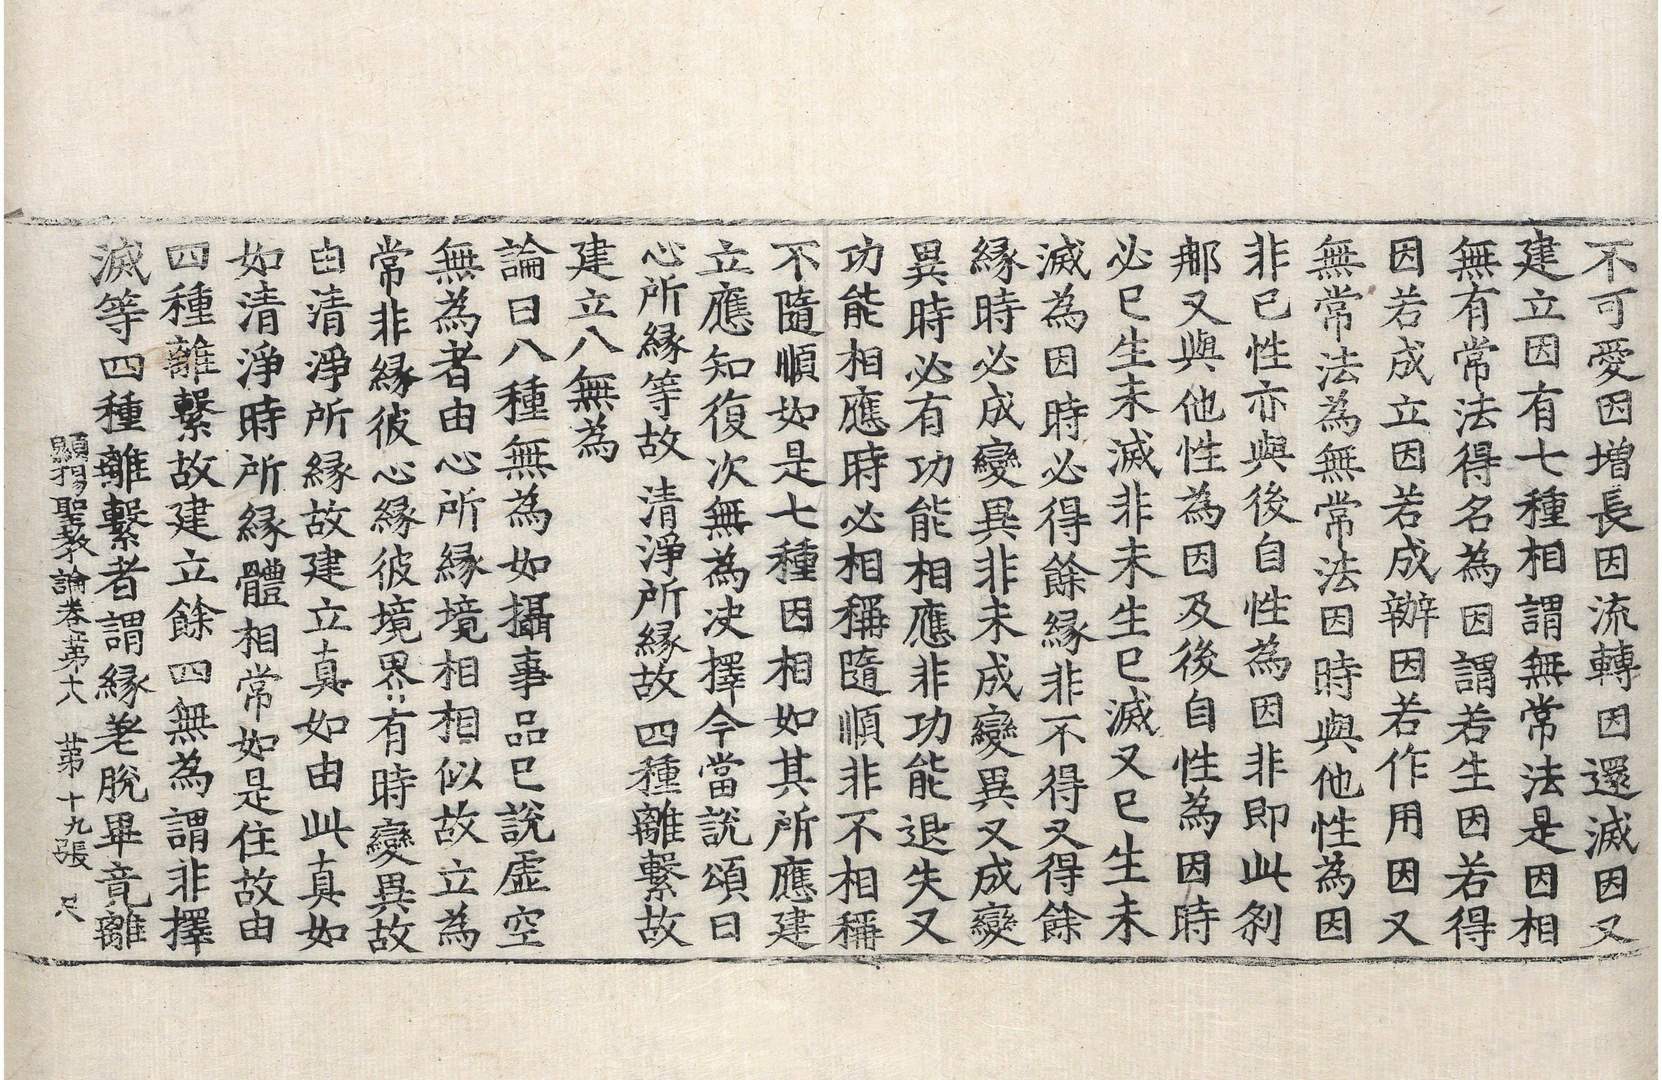 不可愛因增長因流轉因還滅因又
建立因有七種相謂無常法是因相
無有常法得名為因謂若生因若得
因若成立因若成辦因若作用因又
無常法為無常法因時與他性為因
非已性亦與後自性為因非即此剎
𨙻又與他性為因及後自性為因時
必已生未滅非未生已滅又已生未
滅為因時必得餘緣非不得又得餘
緣時必成變異非未成變異又成變
異時必有功能相應非功能退失又
功能相應時必相稱隨順非不相稱
不隨順如是七種因相如其所應建
立應知復次無為決擇今當說頌曰
心所緣等故 清淨所緣故 四種離繫故
建立八無為
論曰八種無為如攝事品已說虛空
無為者由心所緣境相相似故立為
常非緣彼心緣彼境界有時變異故
由清淨所緣故建立真如由此真如
如清淨時所緣體相常如是住故由
四種離繫故建立餘四無為謂非擇
滅等四種離繫者謂緣老脫畢竟離
顯揚聖教論卷苐十八 苐十九張